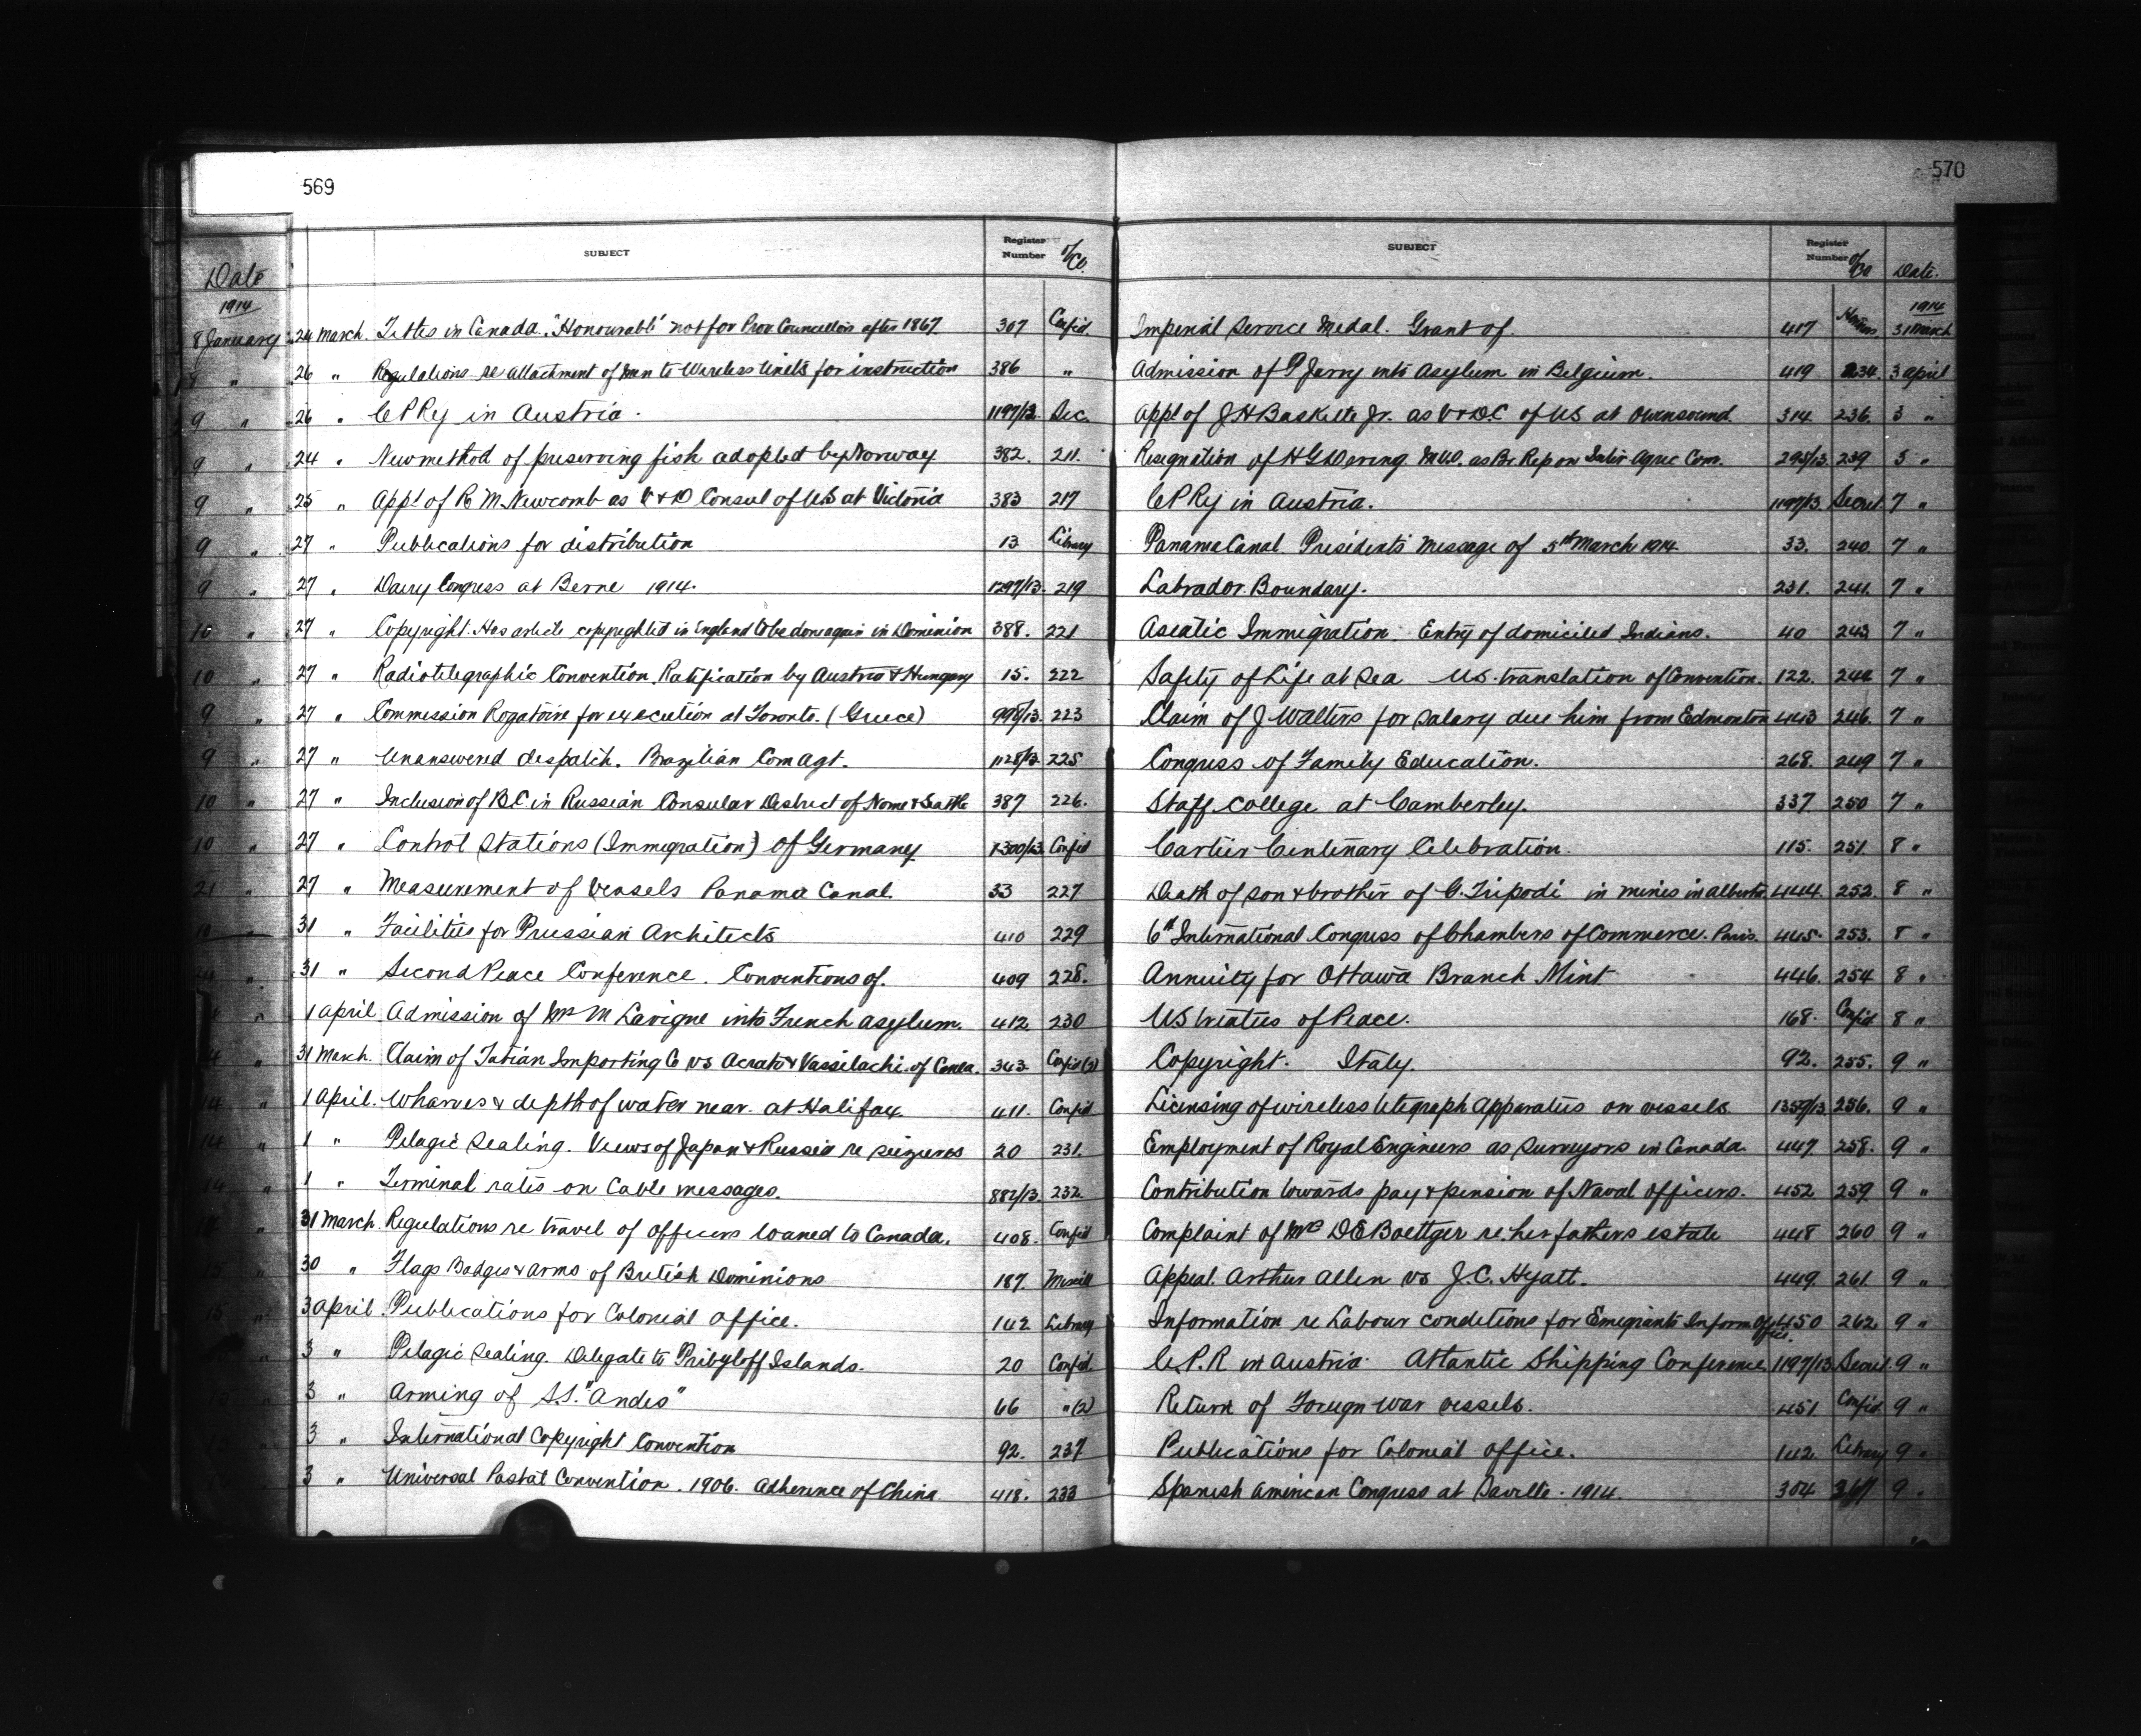 569
SUBJECT Register Number o/Co.
Date
1914
8 January 24 March. Titles in Canada. "Honourable" not for Prov Councellors after 1867. 307 Confid.
" 26 " Regulations re attachment of men to Wireless Units for instruction 386 "
9 " 26 " C P Ry in Austria. 1197/13. Sec.
9 " 24 " New method of preserving fish adopted by Norway 382. 211.
9 " 25 " Appt of R M Newcomb as V & D Consul of US at Victoria 383 217
9 " 27 " Publications for distribution 13 Library
9 " 27 " Dairy Congress at Berne 1914. 1297/13. 219
10 " 27 " Copyright. Has article copyrighted in England to be done again in Dominion 388. 221
10 " 27 " Radiotelegraphic Convention. Ratification by Austria & Hungary 15. 222
9 " 27 " Commission Rogatoire for execution at Toronto. (Greece) 998/13. 223
9 " 27 " Unanswered despatch. Brazilian Com Agt. 1128/13 225
10 " 27 " Inclusion of B.C. in Russian Consular District of Nome & Seattle 387 226.
10 " 27 " Control Stations (Immigration) of Germany 1300/13 Confid
21 " 27 " Measurement of Vessels Panama Canal. 33 227
10 " 31 " Facilities for Prussian Architects 410 229
24 " 31 " Second Peace Conference. Conventions of. 409 228.
" 1 April Admission of Mrs M Lavigne into French asylum. 412 230
" 31 March. Claim of Tatian Importing Co vs Acrato & Vassilachi of Canea. 363 Confid (2)
14 " 1 April. Wharves & depth of water near. at Halifax. 411. Confid
14 " 1 " Pelagic Sealing. Views of Japan & Russia re seizures 20 231.
14 " 1 " Terminal rates on Cable messages. 882/13. 232
" 31 March. Regulations re travel of officers loaned to Canada. 408. Confid
15 " 30 " Flags Badges & arms of British Dominions 187.
15 " 3 April. Publications for Colonial Office. 142 Library
3 " Pelagic Sealing. Delegate to Pribyloff Islands. 20 Confid.
3 " Arming of S.S. "Andes" 66 " (2)
3 " International Copyright Convention 92. 237
3 " Universal Postal Convention. 1906. Adherence of China 418. 233
570
SUBJECT Register Number Date.
1914
Imperial Service Medal. Grant of. 417 31 March
Admission of P Jarry into Asylum in Belgium. 419 234. 3 April
Appt of J H Baskette Jr. as V & D.C of US at Owensound. 314 236. 3 "
Resignation of H G Dering M.V.O. as Br. Rep on Inter Agric Com. 295/13. 239 3 "
C P Ry in Austria. 1197/13. Secret. 7 "
Panama Canal Presidents Message of 5th March 1914. 33. 240 7 "
Labrador Boundary. 231. 241. 7 "
Asiatic Immigration. Entry of domiciled Indians. 40 243 7 "
Safety of Life at Sea US. translation of Convention. 122. 244 7 "
Claim of J Walters for salary due him from Edmonton 443 246. 7 "
Congress of Family Education. 268. 249 7 "
Staff College at Camberley. 337. 250 7 "
Cartier Centenary Celebration. 115. 251. 8 "
Death of son & brother of G. Tripodi in mines in Alberta 444. 252. 8 "
6th International Congress of Chambers of Commerce. Paris. 445. 253. 8 "
Annuity for Ottawa Branch Mint. 446. 254 8 "
US treaties of Peace. 168. Confid 8 "
Copyright. Italy. 92. 255. 9 "
Licensing of wireless telegraph apparatus on vessels. 1359/13. 256. 9 "
Employment of Royal Engineers as surveyors in Canada. 447. 258. 9 "
Contribution towards pay & pension of Naval officers. 452 259 9 "
Complaint of Mrs D E Boettger re. her fathers estate 448 260 9 "
Appeal. Arthur Allen vs J.C. Hyatt. 449. 261. 9 "
Information re Labour conditions for Emigrants Inform Office. 450 262 9 "
C.P.R in Austria. Atlantic Shipping Conference. 1197/13 Secret. 9 "
Return of Foreign war vessels. 451. Confid. 9 "
Publications for Colonial Office. 142. Library 9 "
Spanish American Congress at Saville. 1914. 304 9 "